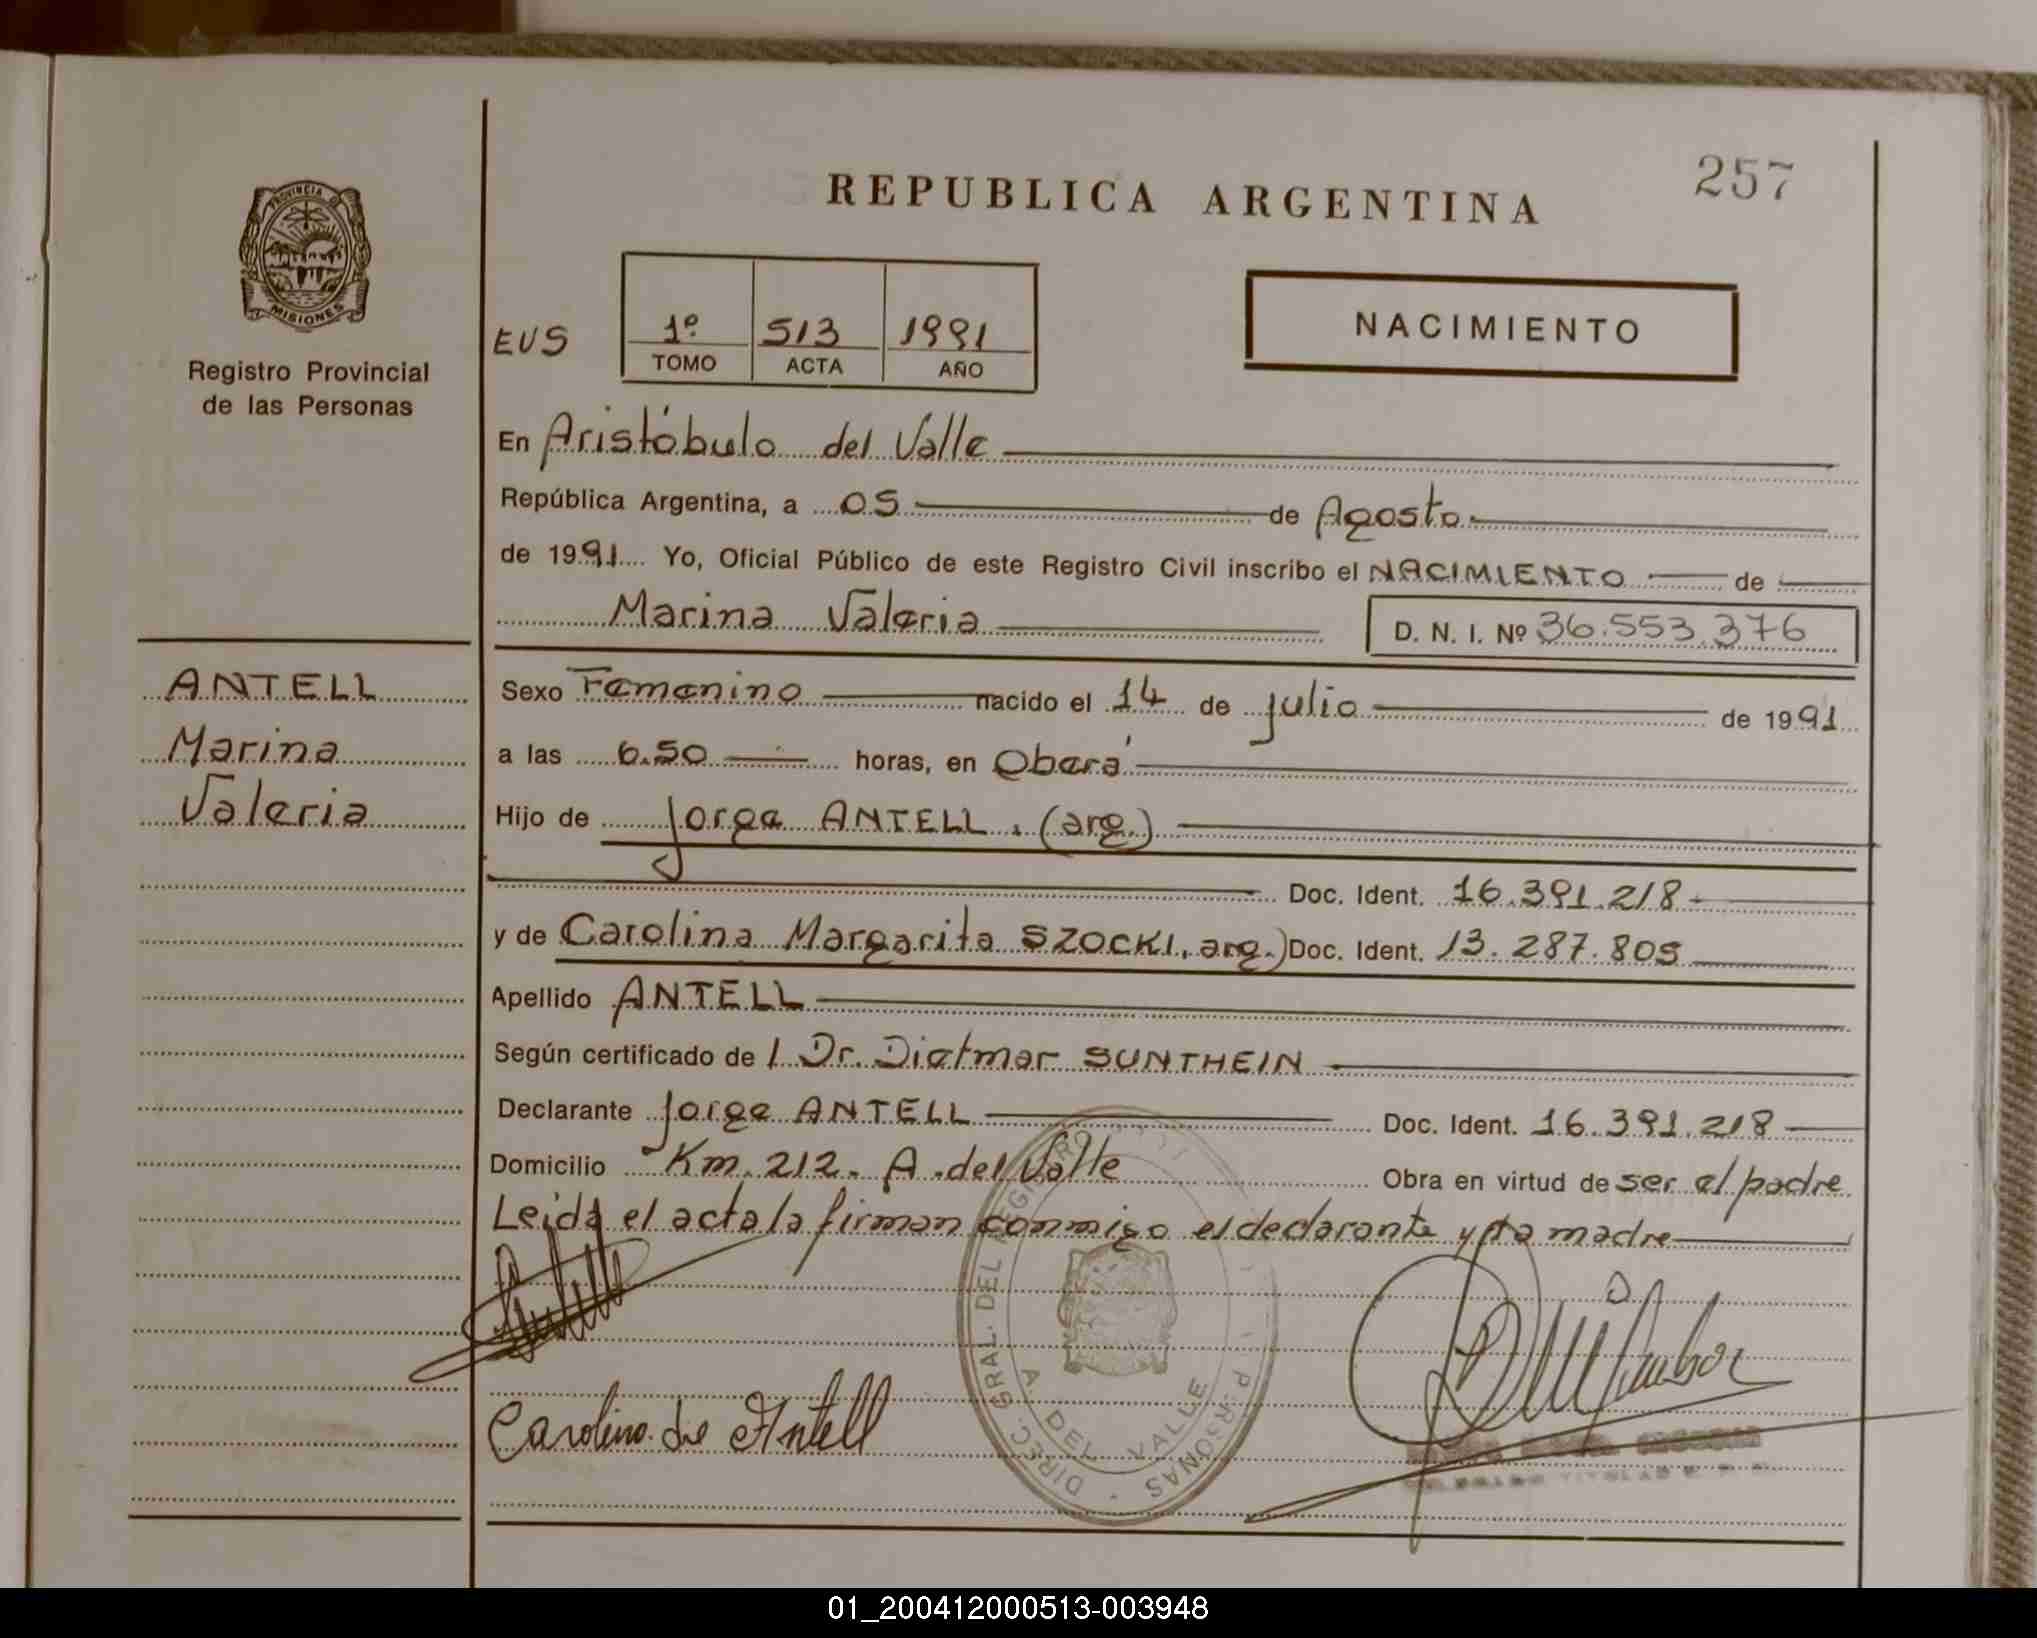 REPUBLICA ARGENTINA
257
PROVINCIA D
MISIONES
Registro Provincial
de las Personas
EUS
1º 513 1991
TOMO ACTA AÑO
NACIMIENTO
En Aristóbulo del Valle
República Argentina, a 05 de Agosto
de 1991 Yo, Oficial Público de este Registro Civil inscribo el NACIMIENTO de
Marina Valeria D. N. I. Nº 36.553.376
ANTELL
Marina
Valeria
Sexo Femenino nacido el 14 de julio de 1991
a las 6.50 horas, en Oberá
Hijo de Jorge ANTELL. (arg.)
Doc. Ident. 16.391.218
y de Carolina Margarita SZOCKI, arg.) Doc. Ident. 13.287.805
Apellido ANTELL
Según certificado de l Dr. Dietmar SUNTHEIN
Declarante Jorge ANTELL Doc. Ident. 16.391.218
Domicilio Km. 212. A. del Valle Obra en virtud de ser el padre
Leida el acta la firman conmigo el declarante y la madre
Carolina de Antell
DIREC. GRAL. DEL REGISTRO
PERSONAS
A. DEL VALLE
01_200412000513-003948